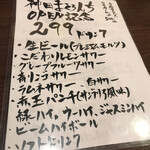 神田まとんち
OPEN記念
299 ドリンク
・生ビール(プレミアムモルツ)
・こだわりレモンサワー
・グレープフルーツサワー
・青リンゴサワー
・ラムネサワー ・白サワー
・赤玉パンチ(サングリア風味)
・緑ハイ、ウーハイ、ジャスミンハイ
・ビームハイボール
・ソフトドリンク